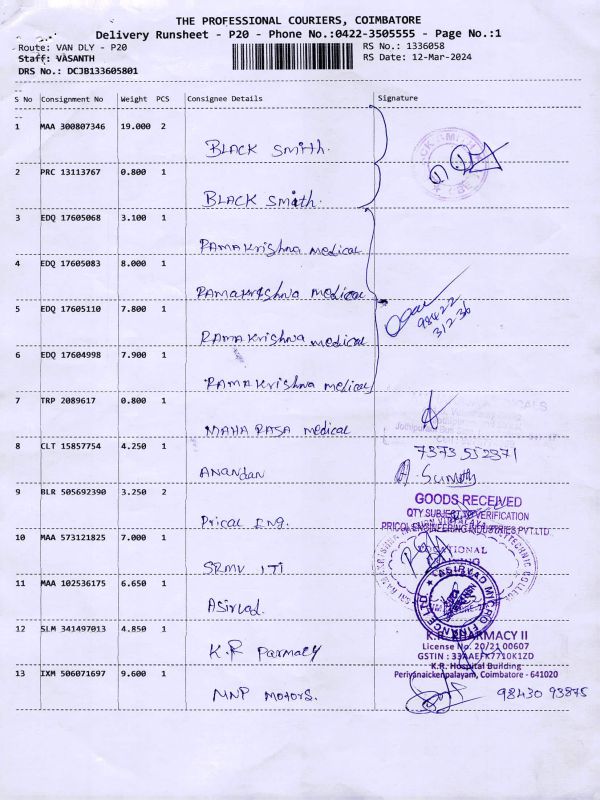 THE PROFESSIONAL COURIERS, COIMBATORE
Delivery Runsheet - P20 - Phone No.:0422-3505555 - Page No.:1
Route: VAN DLY - P20
RS No.: 1336058
Staff: VASANTH
RS Date: 12-Mar-2024
DRS No.: DCJB133605801
S No Consignment No Weight PCS Consignee Details Signature
1 MAA 300807346 19.000 2
BLACK Smith.
2 PRC 13113767 0.800 1
BLACK Smith.
3 EDQ 17605068 3.100 1
RAMAKrishna medical
4 EDQ 17605083 8.000 1
RAMAKrishna medical
5 EDQ 17605110 7.800 1
98422
31236
RAMAKrishna medical
6 EDQ 17604998 7.900 1
RAMAKrishna medical
7 TRP 2089617 0.800 1
MAHA RASA medical
8 CLT 15857754 4.250 1
7373552371
Anandan
9 BLR 505692390 3.250 2
GOODS RECEIVED
QTY.SUBJECT TO VERIFICATION
PRICOL ENGINEERING INDUSTRIES PVT.LTD
Prical Eng.
10 MAA 573121825 7.000 1
SRMV ITI
11 MAA 102536175 6.650 1
ASIRVAD MICRO FINANCE LTD
Asirvad.
12 SLM 341497013 4.850 1
K.R. PHARMACY II
License No. 20/21 00607
GSTIN : 33AAEFK7710K1ZD
K.R Parmacy
K.R. Hospital Building
Periyanaickenpalayam, Coimbatore - 641020
13 IXM 506071697 9.600 1
MNP MOTORS.
98430 93875